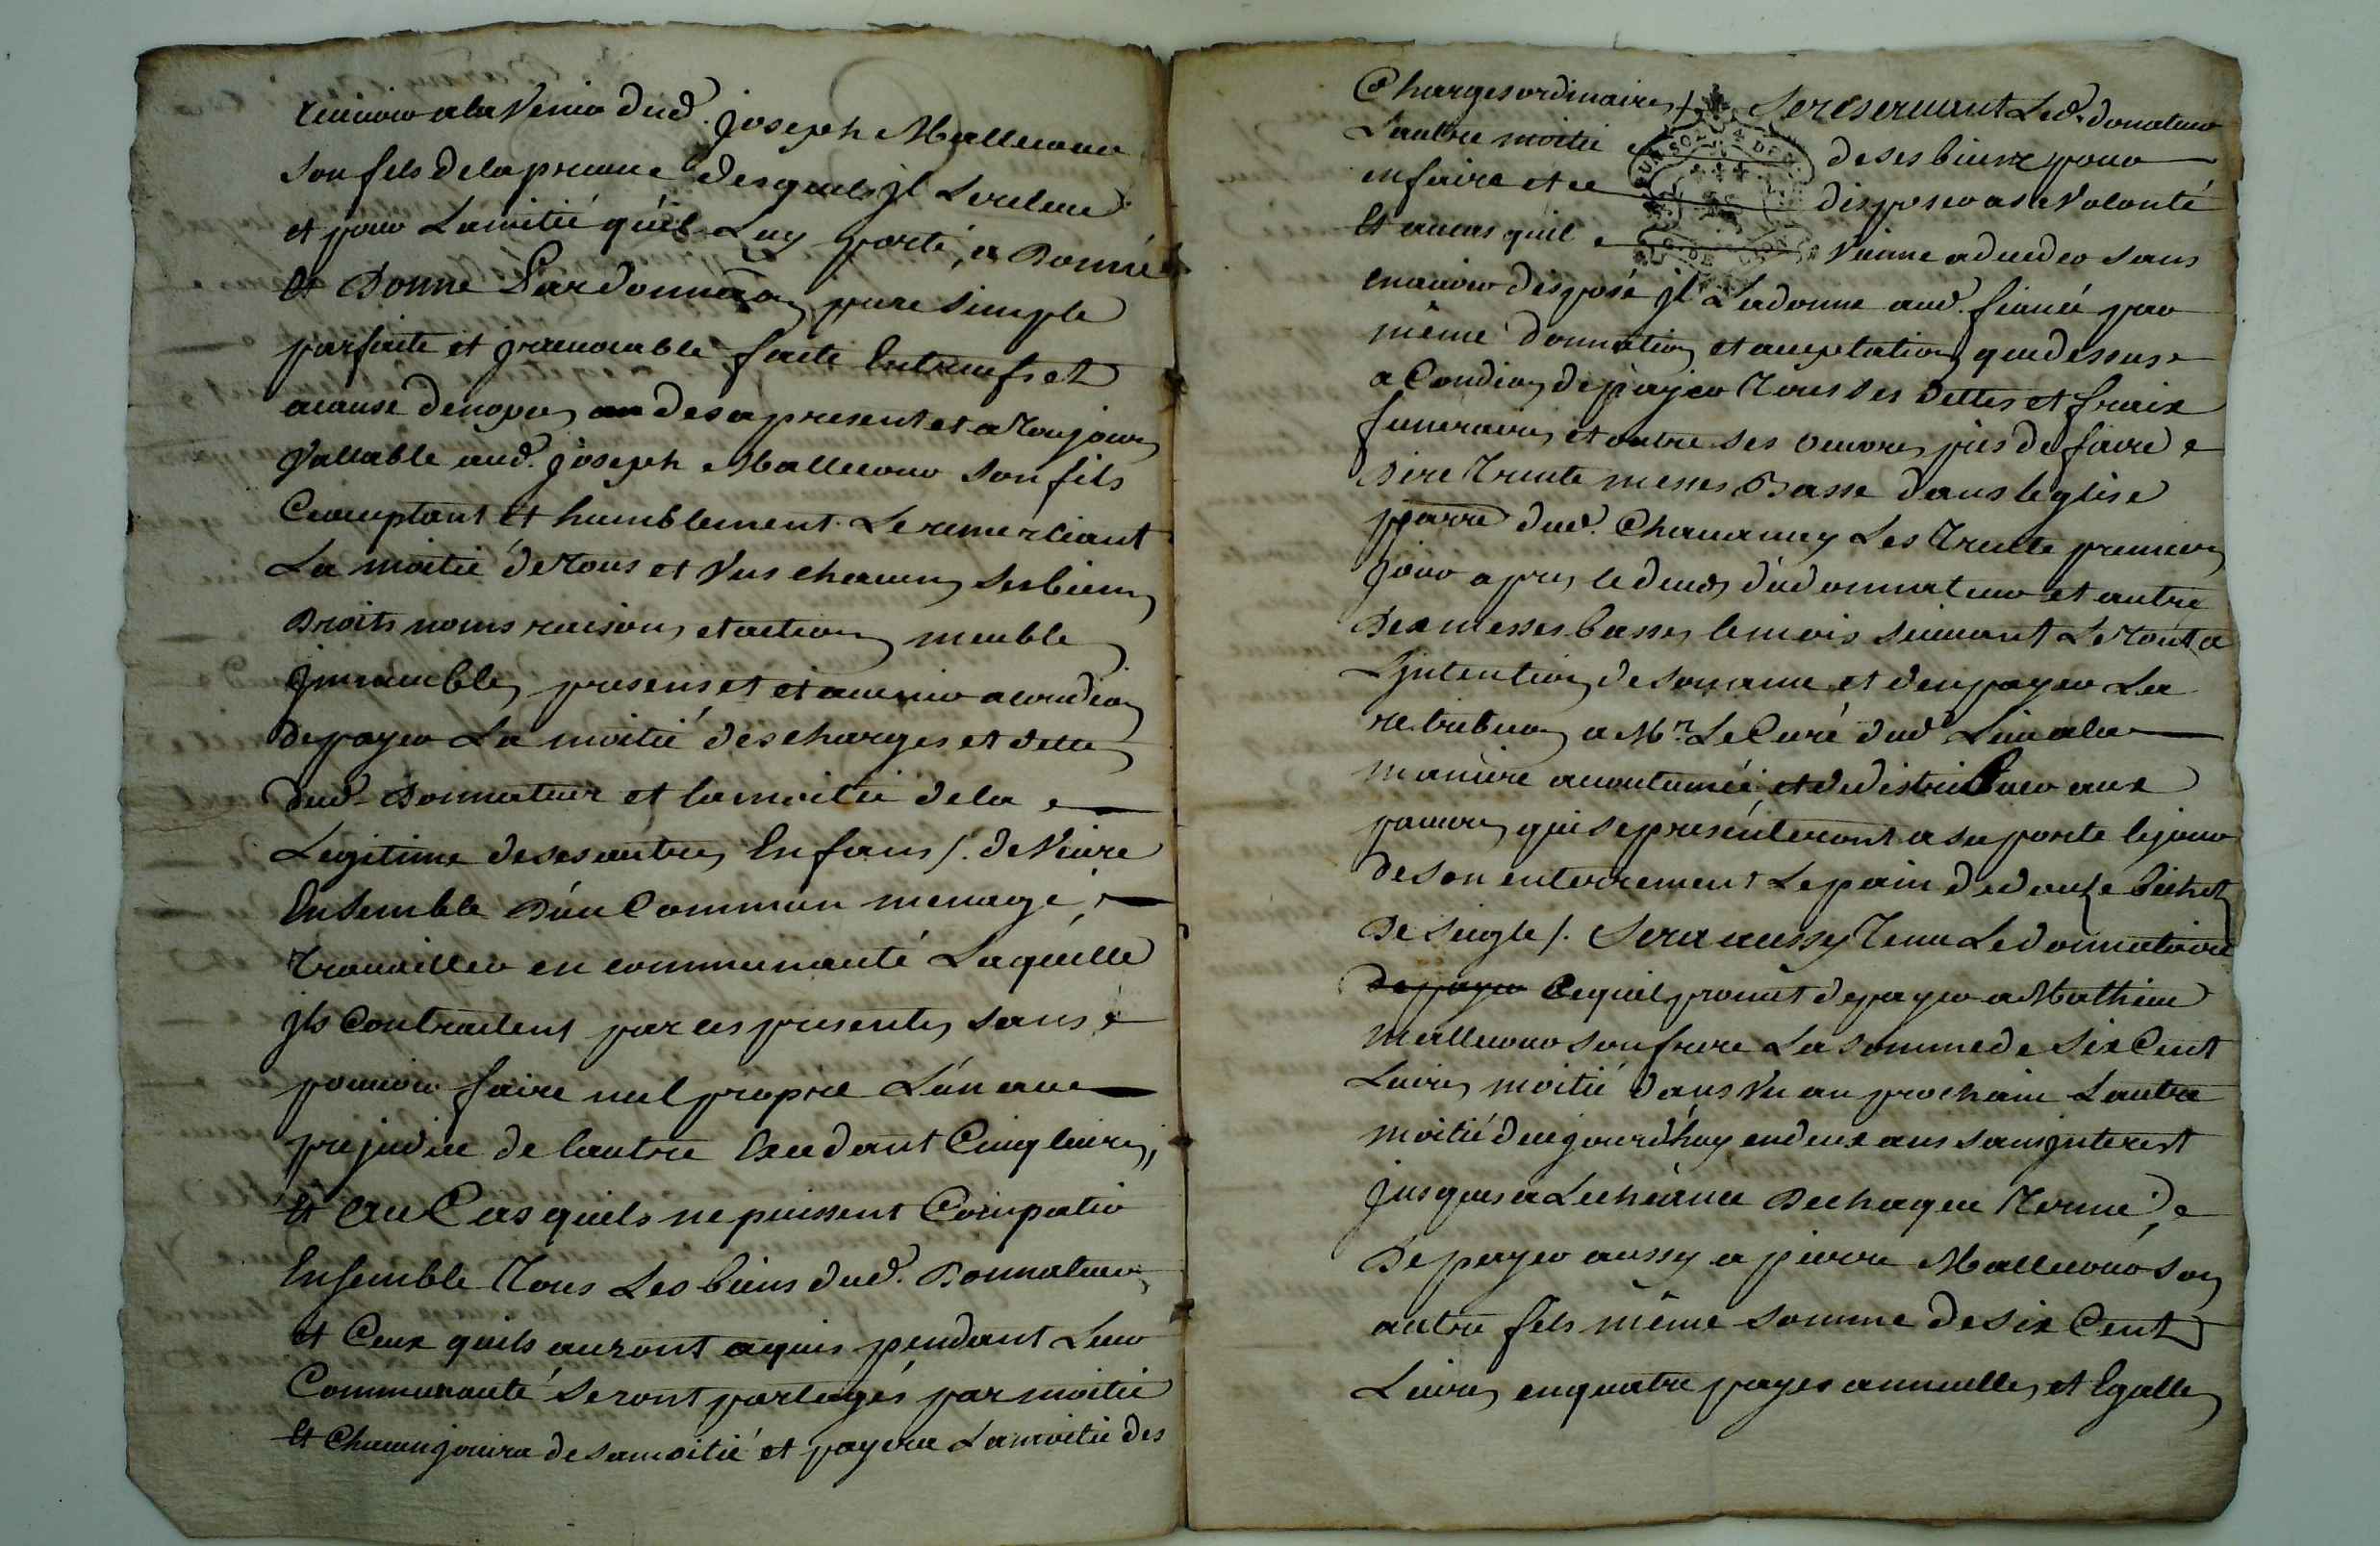 recevoir a la venir dud. joseph Mallecour
son fils de la preuve desquels jl Lereleve
et pour Lamitié quil Luy porte, a Donné
Et Donne Par donnaôn pure simple
parfaite et jrrevocable faite Entreuifs et
acause denopces des apresent et a Toujours
Vallable aud. joseph Mallecour son fils
Acceptant Et humblement Le remerciant
La moitié de Tous et Vns chacuns ses biens
Droits noms raisons et actions meuble
jmmeubles presens et et avenir a condiôn
de payer La moitié des charges et dettes
dud. Donnateur et la moitié de la
Legitime de ses autres Enfans /. de Vivre
Ensemble Dun Commun menage,
Travailler en communauté Laquelle
jls Contractent par ces presentes sans
pouvoir faire nul propre Lun au
prejudice de lautre Excedant Cinq livres,
Et au Cas quils ne puissent Compatir
Ensemble Tous Les biens dud. Donnateur
et Ceux quils auront aquis pendant Leur
Communauté Seront partagés par moitié
Et Chacun jouira de sa moitié et payera La moitié des
Charges ordinaires /. Sereservant Led. donateur
Lautre moitié de ses biens pour
en faire et disposer a sa Volonté
Et aucas quil Vienne adeceder sans
enavoir disposé jl La donne aud. fiancé par
même donnation et acceptation que dessus
a Condiôn de payer Tous ses Dettes et fraix
funeraires et outre ses oeuvres pies de faire
Dire Trente messes Basse dans leglise
parre dud. Chavannay Les Trente premiers
jour apres le deces dud onnateur et autre
Dix messes basses le mois suivant Le Tout a
Ljntention de son ame et den payer La
retribuôn a Mr. Le Curé dud. Lieu a la
maniere acoutumée et de distribuer aux
pauvres qui se presenteront a sa porte le jour
de son enterrement Le pain de douze bichets
De seigle /. Sera aussy Tenu Le donnataire
de payer Cequil promet de payer a Mathieu
Mallecour son frere La somme de Six Cent
Livres moitié dans Vn an prochain Lautre
moitié daujourdhuy en deux ans sans jnterest
jusques a Lecheance De chaque Terme,
De payer aussy a pierre Mallecour son
autre fils même somme de Six Cent
Livres en quatre payes annuelles et Egalles